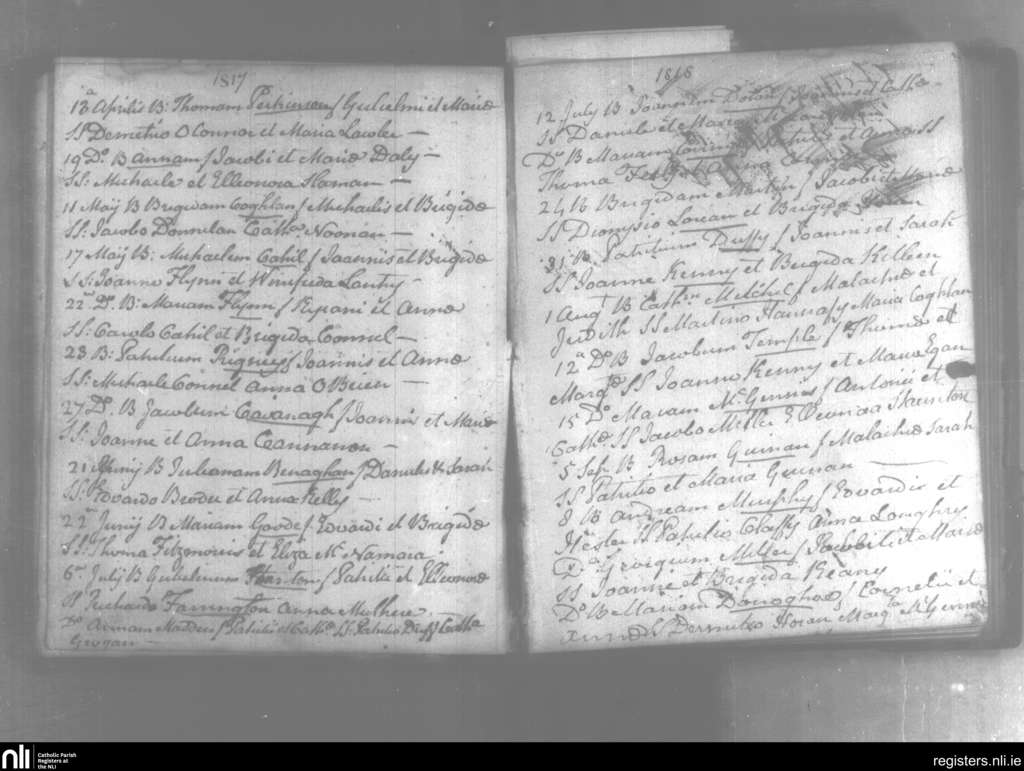 1817
13a Aprilis B: Thomam Perkinson f Gulielmi et Mariæ
SS Demetrio O Connor et Maria Lawler —
19 Do. B Annam f Jacobi et Mariæ Daly —
SS: Michaele et Elleonora Haman —
11 Maij B Brigidam Coghlan f Michaelis et Brigidæ
SS: Jacobo Donnelan Cathn Noonan —
17 Maij B: Michaelem Cahil f Joannis et Brigidæ
SS: Joanne Flynn et Winifrida Lantry —
22 Do. B: Mariam Flynn f Kyrani et Annæ
SS: Carolo Cahil et Brigida Connel —
23 B: Patricium Rigney f Joannis et Annæ
SS: Michaele Connel Anna O Brien —
27 Do. B Jacobum Cavanagh f Joannis et Mariæ
SS: Joanne et Anna Cannanon —
21 Junij B Julianam Benaghan f Danielis & Sarah
SS: Edvardo Broder et Anna Kelly —
22 Junij B Mariam Goode f. Edvardi et Brigidæ
SS: Thoma Fitzmorris et Eliza Mc Namara
6 Julij B Gulielmum f Patritii et Elleonoræ
SS Richardo Farrington Anna Mulhere
Do Annam Madden f Patritii et Cathn SS Patritio Duffy Catha
Grogan —
1818
12 July B Joannem Dolan f et Catha
SS Daniele et Maria
Do B Mariam et Anna SS
Thoma Anna
24 B Brigidam Martin f Jacobi et Mariæ
SS Dionysio Lorcan et Brigida
31 B. Patritium Duffy f Joannis et Sarah
SS Joanne Kenny et Brigida Killeen
1 Augt B Cathn Mitchel f Malachiæ et
Judith SS Martino Hannafy Maria Coghlan
12a Do B Jacobum Temple f Thomæ et
Margt SS Joanne Kenny et Maria Egan
15 Do Mariam Mc Gennis f Antonii et
Cathæ SS Jacobo Miller & Veronica Staunton
5 Sep. B Rosam Guinan f Malachiæ Sarah
SS Patritio et Maria Guinan —
8 B Andream Murphy f Edvardi et
Hester SS Patritio Claffy Anna Loughry
Do Miller f Jacobi et Mariæ
SS Joanne et Brigida Keany
Do B Mariam Donoghoe f Cornelii et
Annæ SS Dermitio Horan Margta Mc Gennis
nli
Catholic Parish
Registers at
the NLI
registers.nli.ie